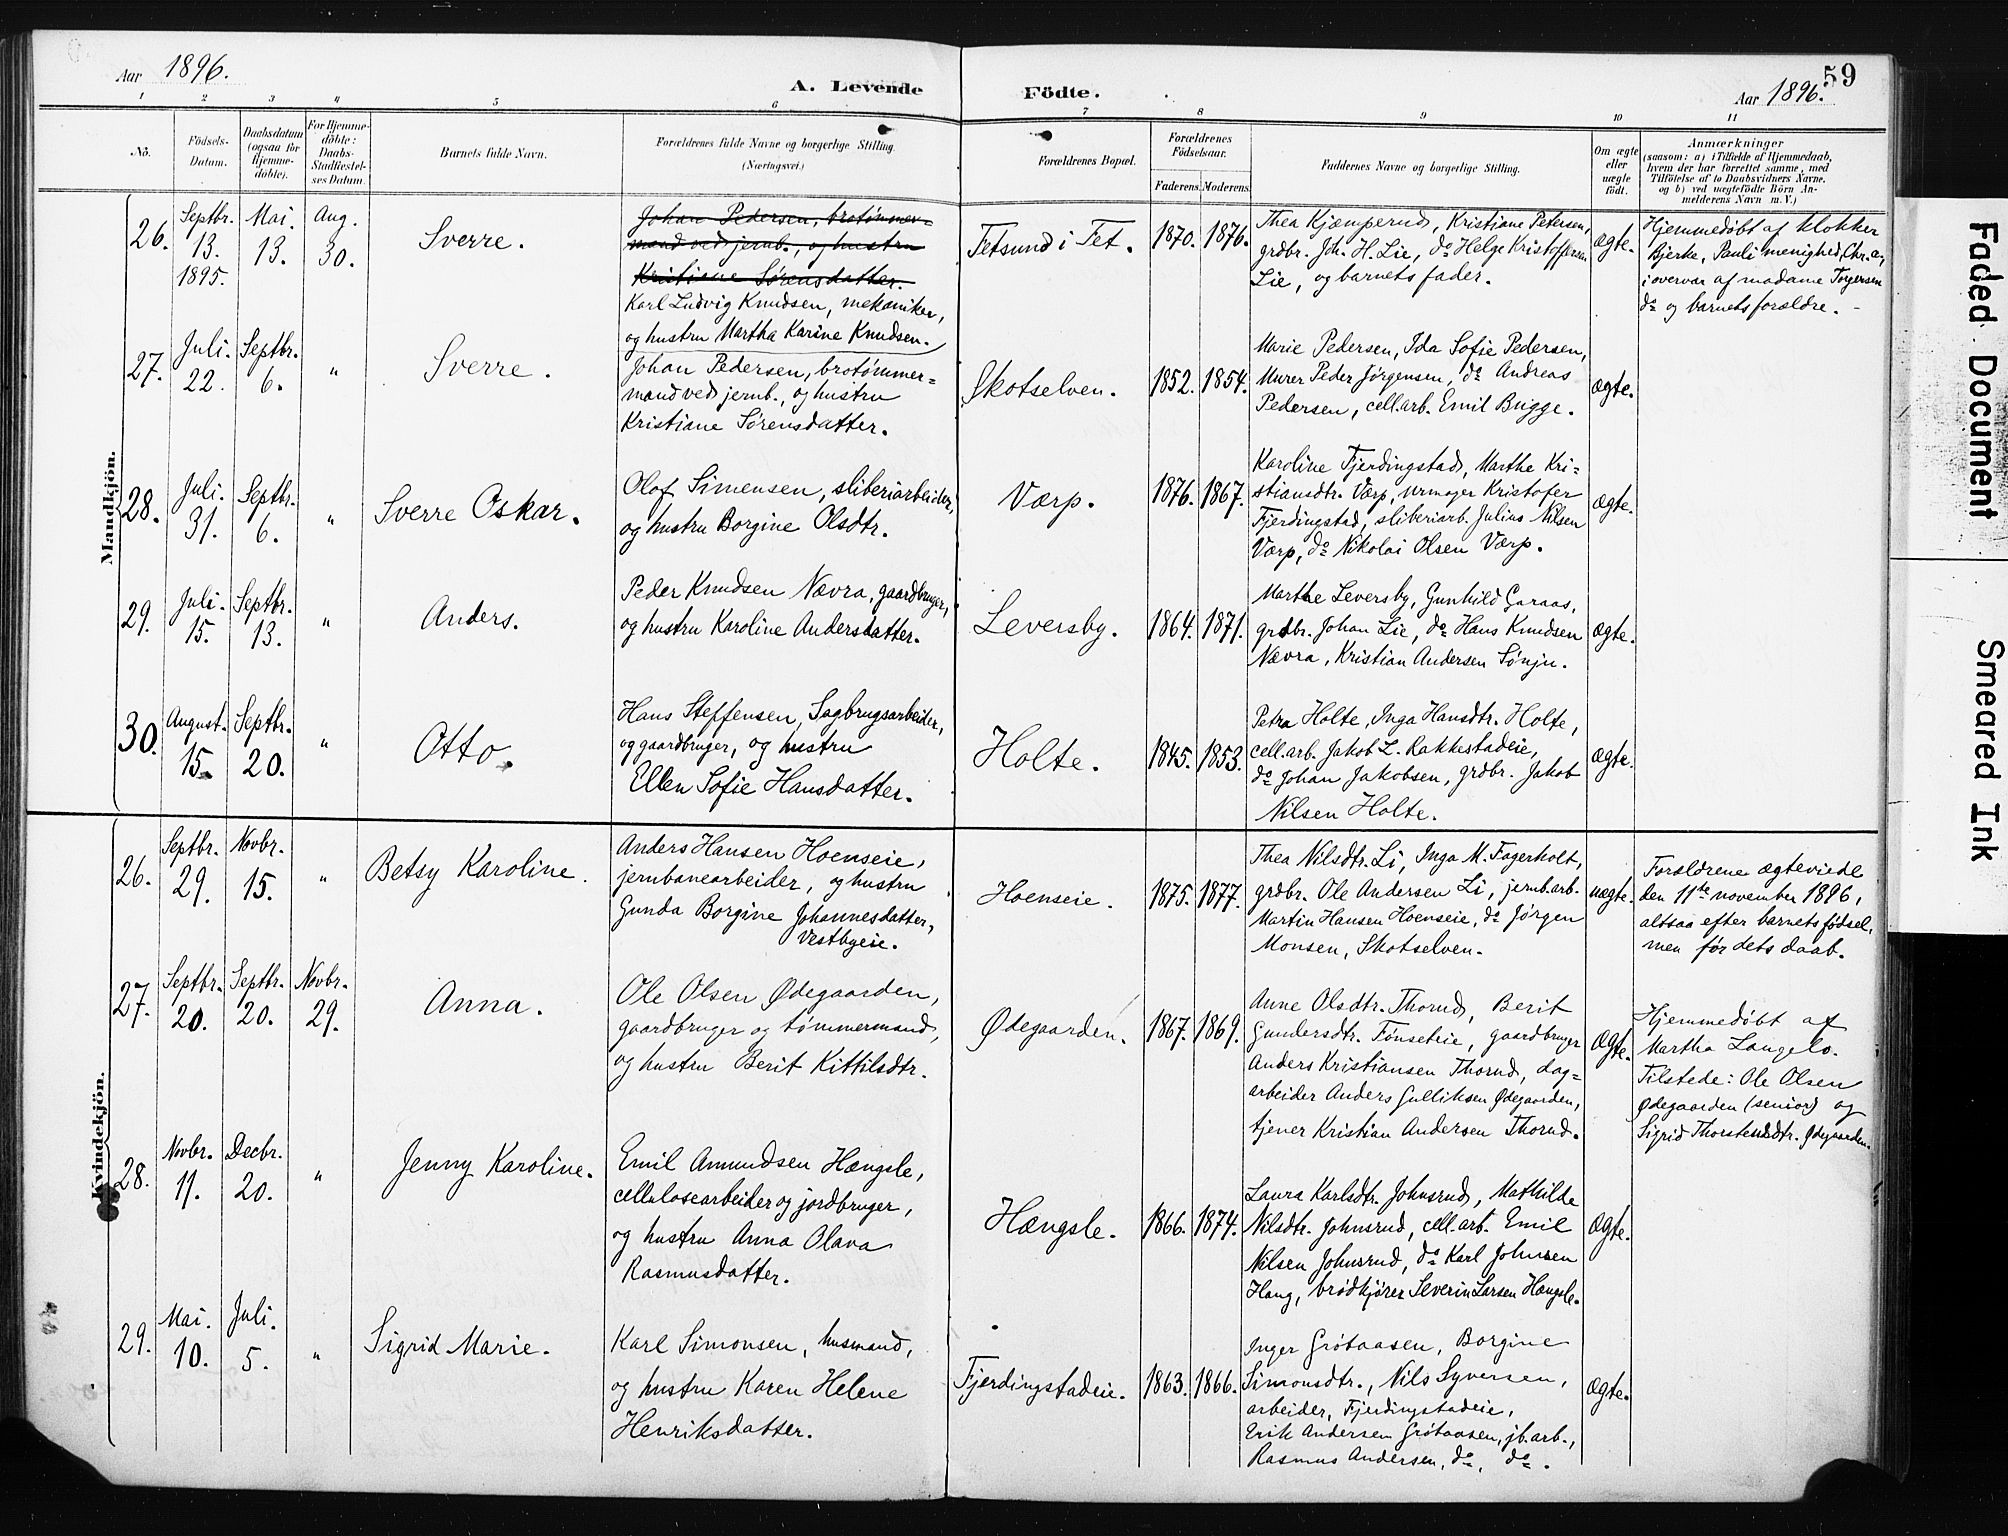 Aar 1896.
A. Levende Födte.
Aar 1896.
59
1 2 3 4 5 6 7 8 9 10 11
No.
Födsels-Datum.
Daabsdatum (ogsaa for Hjemme-döbte).
For Hjemme-döbte: Daabs-Stadfæstel-ses Datum.
Barnets fulde Navn.
Forældrenes fulde Navne og borgerlige Stilling (Næringsvei.)
Forældrenes Bopæl.
Forældrenes Födselsaar.
Faderens. Moderens.
Faddernes Navne og borgerlige Stilling.
Om ægte eller uægte födt.
Anmærkninger
(saasom: a) i Tilfælde af Hjemmedaab, hvem der har forrettet samme, med Tilföielse af to Daabsvidners Navne, og b) ved uægtefödte Börn An-melderens Navn m. V.)
Mandkjön.
26.
Septbr. 13. 1895.
Mai. 13.
Aug. 30.
Sverre.
Johan Pedersen, brotømmer=
mand ved jernb., og hustru
Kristiane Sørensdatter.
Karl Ludvig Knudsen, mekaniker,
og hustru Martha Karine Knudsen.
Fetsund i Fet.
1870. 1876.
Thea Kjæmperud, Kristiane Petersen,
grdbr. Joh. H. Lie, do Helge Kristoffersen
Lie, og barnets fader.
ægte.
Hjemmedøbt af klokker
Bjerke, Pauli menighed, Chr.a,
i overvær af madame Torgersen
do og barnets forældre. -
27.
Juli. 22.
Septbr. 6.
"
Sverre.
Johan Pedersen, brotømmer=
mand ved jernb., og hustru
Kristiane Sørensdatter.
Skotselven.
1852. 1854.
Marie Pedersen, Ida Sofie Pedersen,
Murer Peder Jørgensen, do Andreas
Pedersen, cell.arb. Emil Brigge.
ægte.
28.
Juli. 31.
Septbr. 6.
"
Sverre Oskar.
Olof Simensen, sliberiarbeider,
og hustru Borgine Olsdtr.
Værp.
1876. 1867.
Karoline Fjerdingstad, Marthe Kri=
stiansdtr. Værp, urmager Kristofer
Fjerdingstad, sliberiarb. Julius Nilsen
Værp, do Nikolai Olsen Værp.
ægte.
29.
Juli. 15.
Septbr. 13.
"
Anders.
Peder Knudsen Nævra, gaardbruger,
og hustru Karoline Andersdatter.
Leversby.
1864. 1871.
Marthe Leversby, Gunhild Garaas,
grdbr. Johan Lie, do Hans Knudsen
Nævra, Kristian Andersen Sønju.
ægte.
30.
August. 15.
Septbr. 20.
"
Otto.
Hans Steffensen, Sagbrugsarbeider,
og gaardbruger, og hustru
Ellen Sofie Hansdatter.
Holte.
1845. 1853.
Petra Holte, Inga Hansdtr. Holte,
cell.arb. Jakob L. Rakkestadeie,
do Johan Jakobsen, grdbr. Jakob
Nilsen Holte.
ægte.
Kvindekjön.
26.
Septbr. 29.
Novbr. 15.
"
Betsy Karoline.
Anders Hansen Hoenseie,
jernbanearbeider, og hustru
Gunda Borgine Johannesdatter,
Vestbyeie.
Hoenseie.
1875. 1877.
Thea Nilsdtr. Li, Inga M. Fagerholt,
grdbr. Ole Andersen Li, jernb.arb.
Martin Hansen Hoenseie, do Jørgen
Monsen, Skotselven.
uægte.
Forældrene ægteviede
den 11te november 1896,
altsaa efter barnets fødsel,
men før dets daab.
27.
Septbr. 20.
Septbr. 20.
Novbr. 29.
Anna.
Ole Olsen Ødegaarden,
gaardbruger og tømmermand,
og hustru Berit Kittilsdtr.
Ødegaarden.
1867. 1869.
Anne Olsdtr. Thorud, Berit
Gundersdtr. Tønseteie, gaardbruger
Anders Kristiansen Thorud, dag=
arbeider Anders Gulliksen Ødegaarden,
tjener Kristian Andersen Thorud.
Ægte.
Hjemmedøbt af
Martha Langelo.
Tilstede: Ole Olsen
Ødegaarden (senior) og
Sigrid Thorstensdtr. Ødegaarden.
28.
Novbr. 11.
Decbr. 20.
"
Jenny Karoline.
Emil Amundsen Hængsle,
cellulosearbeider og jordbruger,
og hustru Anna Olava
Rasmusdatter.
Hængsle.
1866. 1874.
Laura Karlsdtr. Johnsrud, Mathilde
Nilsdtr. Johnsrud, cell.arb. Emil
Nilsen Johnsrud, do Karl Johnsen
Haug, brødkjører Severin Larsen Hængsle.
Ægte.
29.
Mai. 10.
Juli. 5.
"
Sigrid Marie.
Karl Simonsen, husmand,
og hustru Karen Helene
Henriksdatter.
Fjerdingstadeie.
1863. 1866.
Inger Grøtaasen, Borgine
Simonsdtr., Nils Syversen,
arbeider, Fjerdingstadeie,
Erik Andersen Grøtaasen, jb.arb.,
Rasmus Andersen, do, do.
Ægte.
Faded Document
Smeared Ink